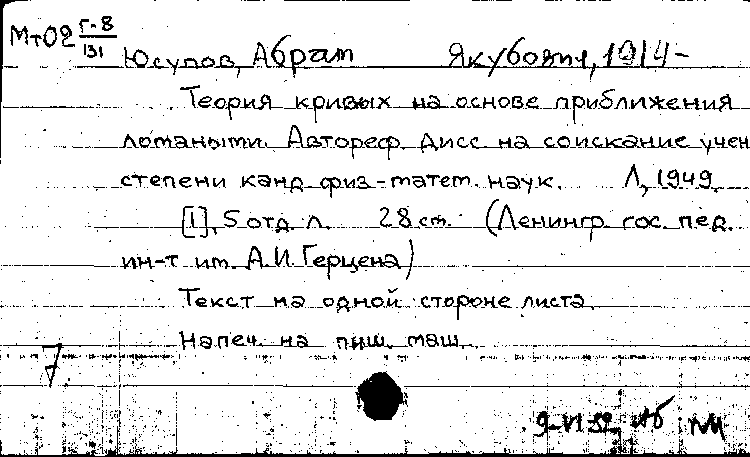 Мт02 г-8/131
Юсупов, Абрам Якубович, 1914-
Теория кривых на основе приближения
ломаными. Автореф. дисс. на соискание учен
степени канд. физ-матем. наук. Л, 1949.
[1], 5 отд. л. 28 см. (Ленингр. гос. пед.
ин-т им. А.И. Герцена)
Текст на одной стороне листа.
Напеч. на пиш. маш.
7
9-VI 52